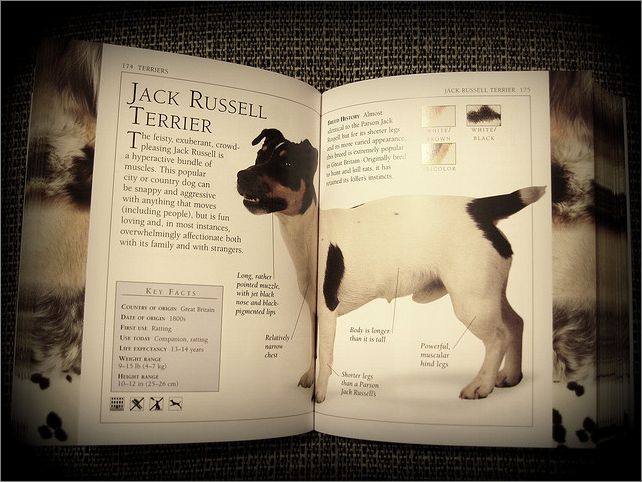 174 TERRIERS
JACK RUSSELL
TERRIER
The feisty, exuberant, crowd-
pleasing Jack Russell is
a hyperactive bundle of
muscles. This popular
city or country dog can
be snappy and aggressive
with anything that moves
(including people), but is fun
loving and, in most instances,
overwhelmingly affectionate both
with its family and with strangers.
KEY FACTS
COUNTRY OF ORIGIN Great Britain
DATE OF ORIGIN 1800s
FIRST USE Ratting
USE TODAY Companion, ratting
LIFE EXPECTANCY 13–14 years
WEIGHT RANGE
9–15 lb (4–7 kg)
HEIGHT RANGE
10–12 in (25–26 cm)
Long, rather
pointed muzzle,
with jet black
nose and black-
pigmented lips
Relatively
narrow
chest
JACK RUSSELL TERRIER 175
BREED HISTORY Almost
identical to the Parson Jack
Russell but for its shorter legs
and its more varied appearance,
this breed is extremely popular
in Great Britain. Originally bred
to hunt and kill rats, it has
retained its killer's instincts.
WHITE/
BROWN
WHITE/
BLACK
TRICOLOR
Body is longer
than it is tall
Powerful,
muscular
hind legs
Shorter legs
than a Parson
Jack Russell's